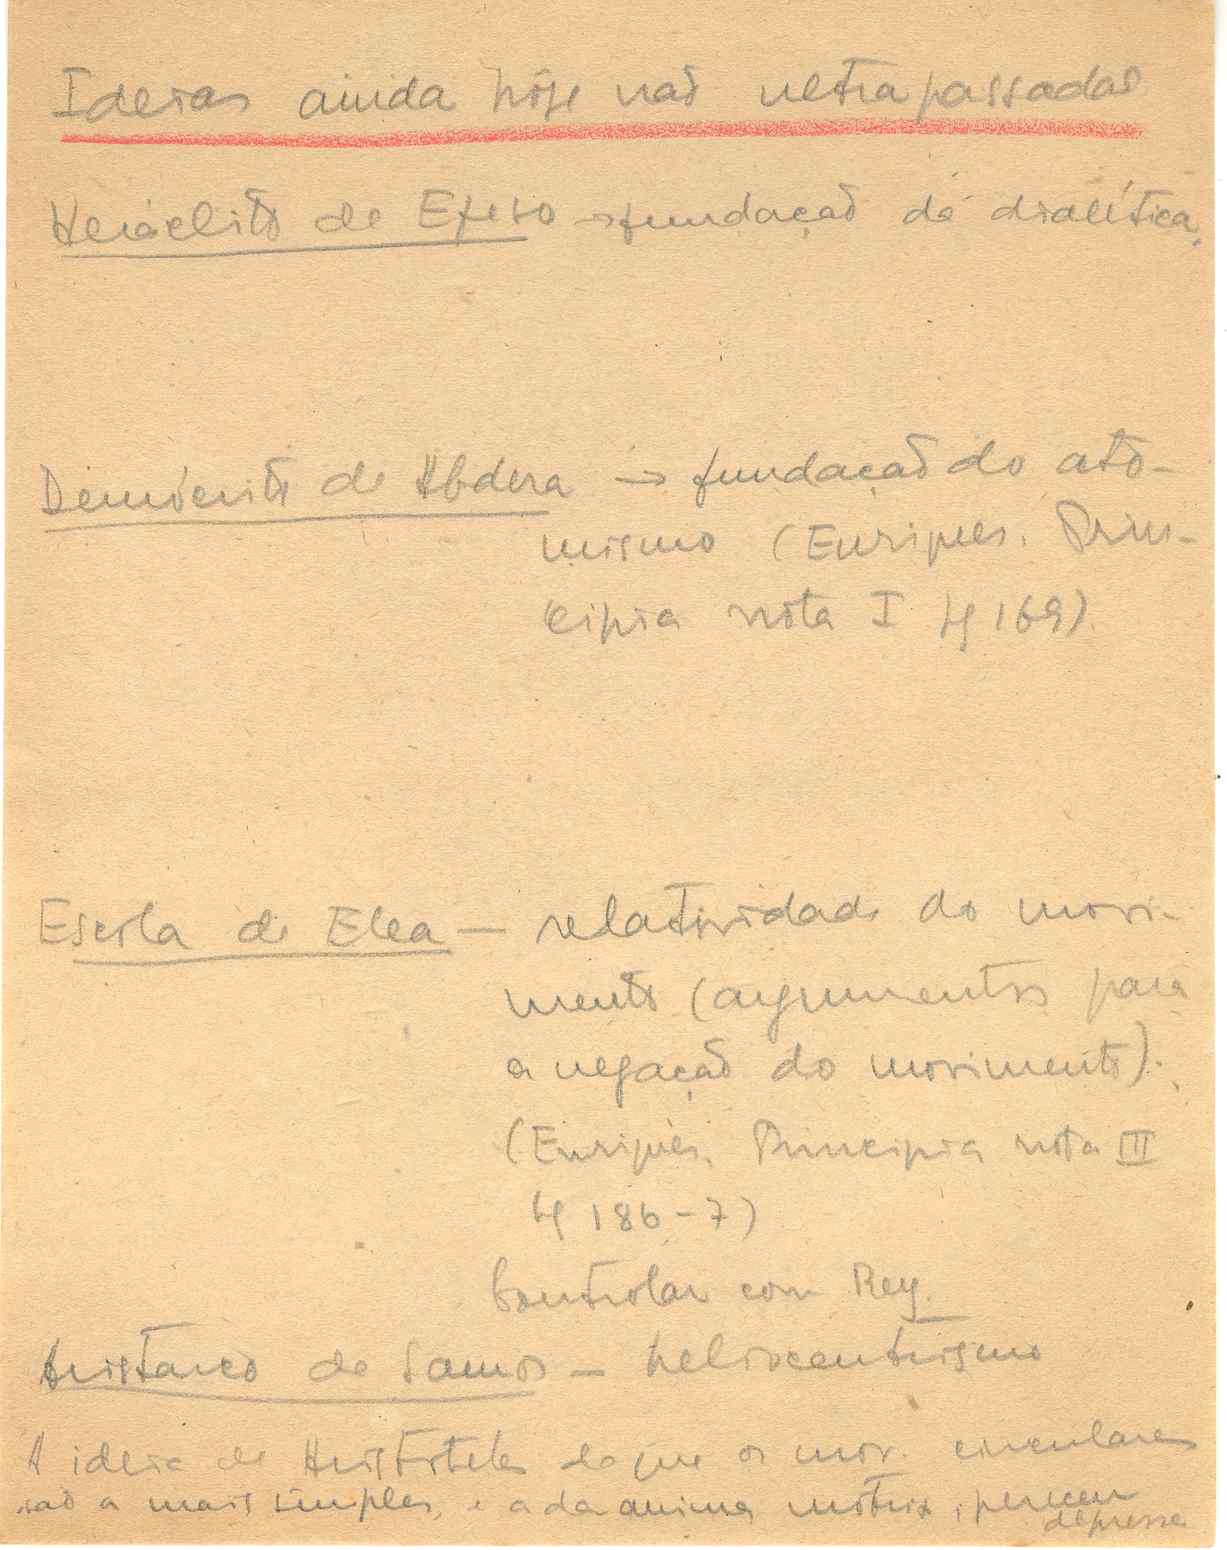 Ideias ainda hoje não ultrapassadas
Heráclito de Efeso → fundação da dialética.
Demócrito de Abdera → fundação do ato-
mismo (Enriques. Prin-
cipia nota I pg 169).
Escola de Elea — relatividade do movi-
mento (argumentos para
a negação do movimento).
(Enriques. Principia nota III
pg 186-7)
Controlar com Rey.
Aristarco de Samos — heliocentrismo
A ideia de Aristoteles de que os mov. circulares
são a mais simples, e a da anima motrix,
depressa